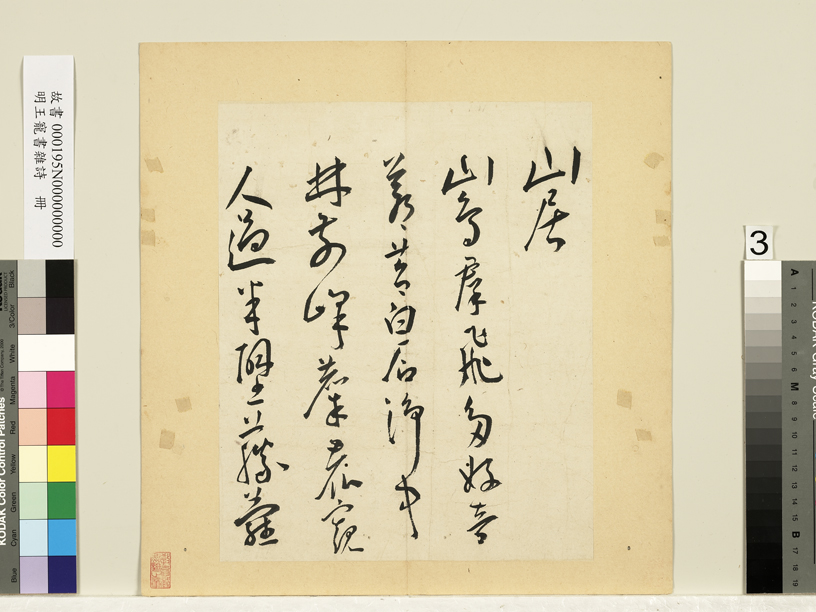 山居
山鳥群飛多好音
蒼苔白石淨中
林前峰麋鹿窺
人過半壁藤蘿
故書 000195N000000000
明王寵書雜詩 冊
KODAK Color Control Patches
Blue
Cyan
Green
Yellow
Red
Magenta
White
3/Color
Black
3
A
1
2
3
4
5
6
M
8
9
10
11
12
13
14
15
B
17
18
19